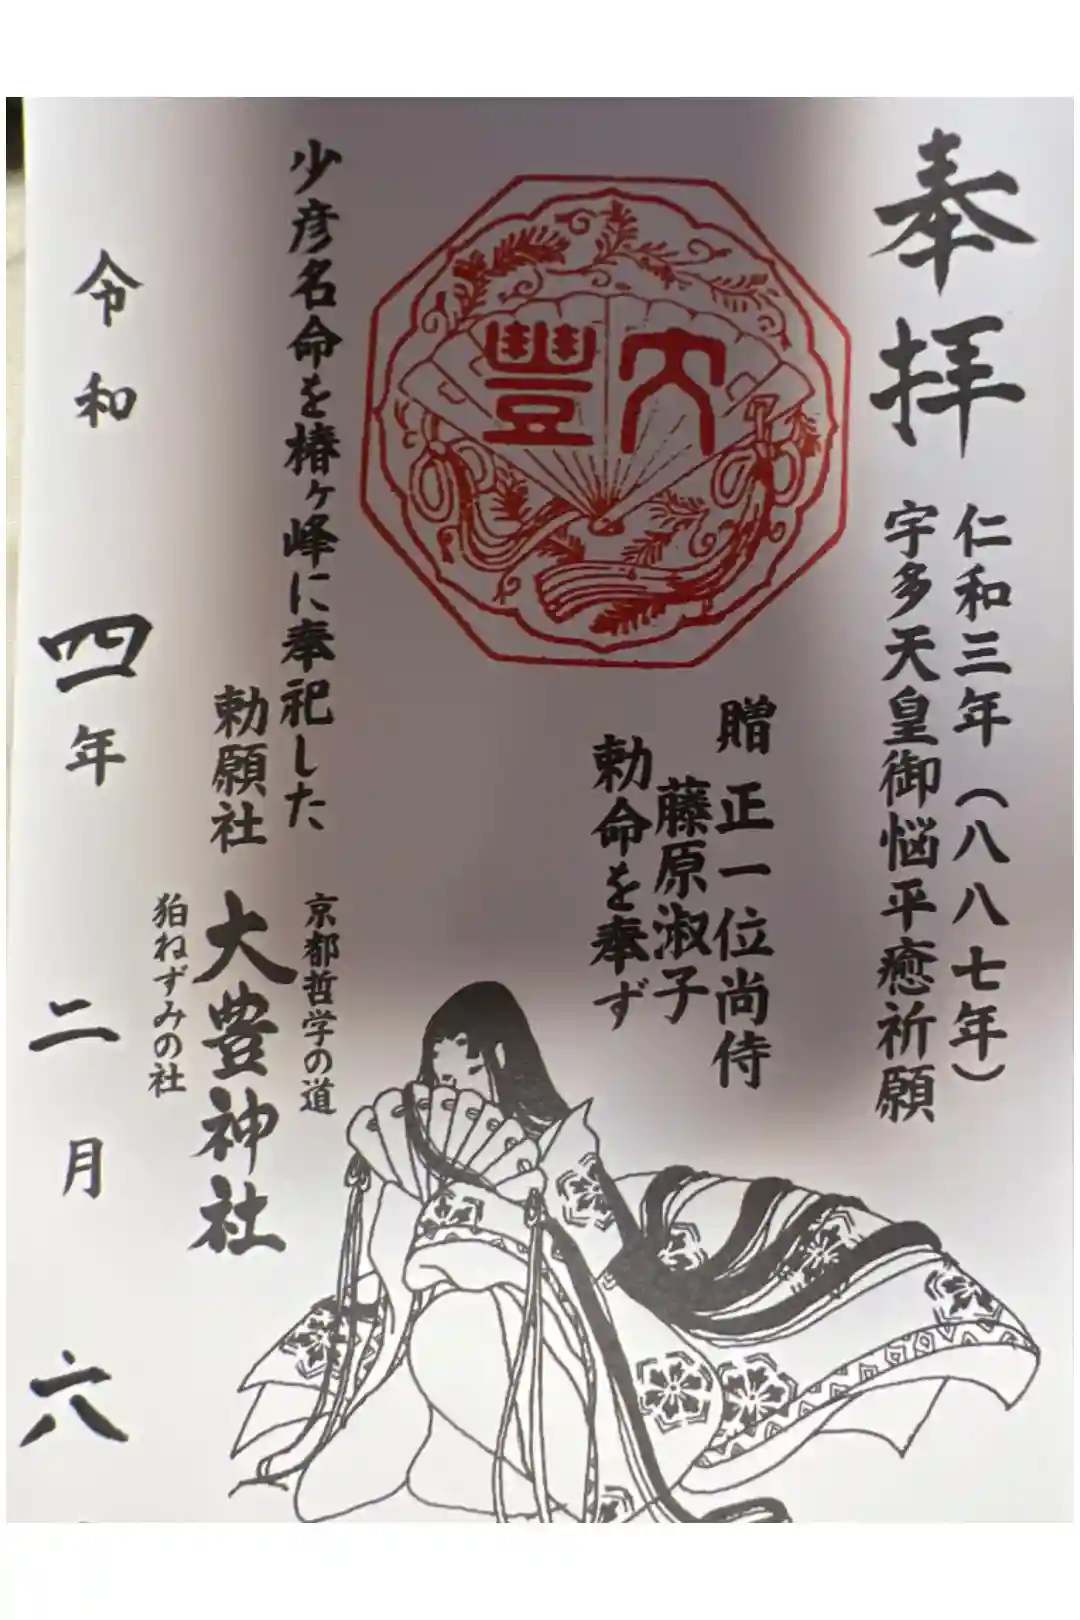 奉拝
仁和三年（八八七年）
宇多天皇御悩平癒祈願
贈 正一位尚侍
藤原淑子
勅命を奉ず
大豐
少彦名命を椿ヶ峰に奉祀した
勅願社
京都哲学の道
大豊神社
狛ねずみの社
令和四年二月六